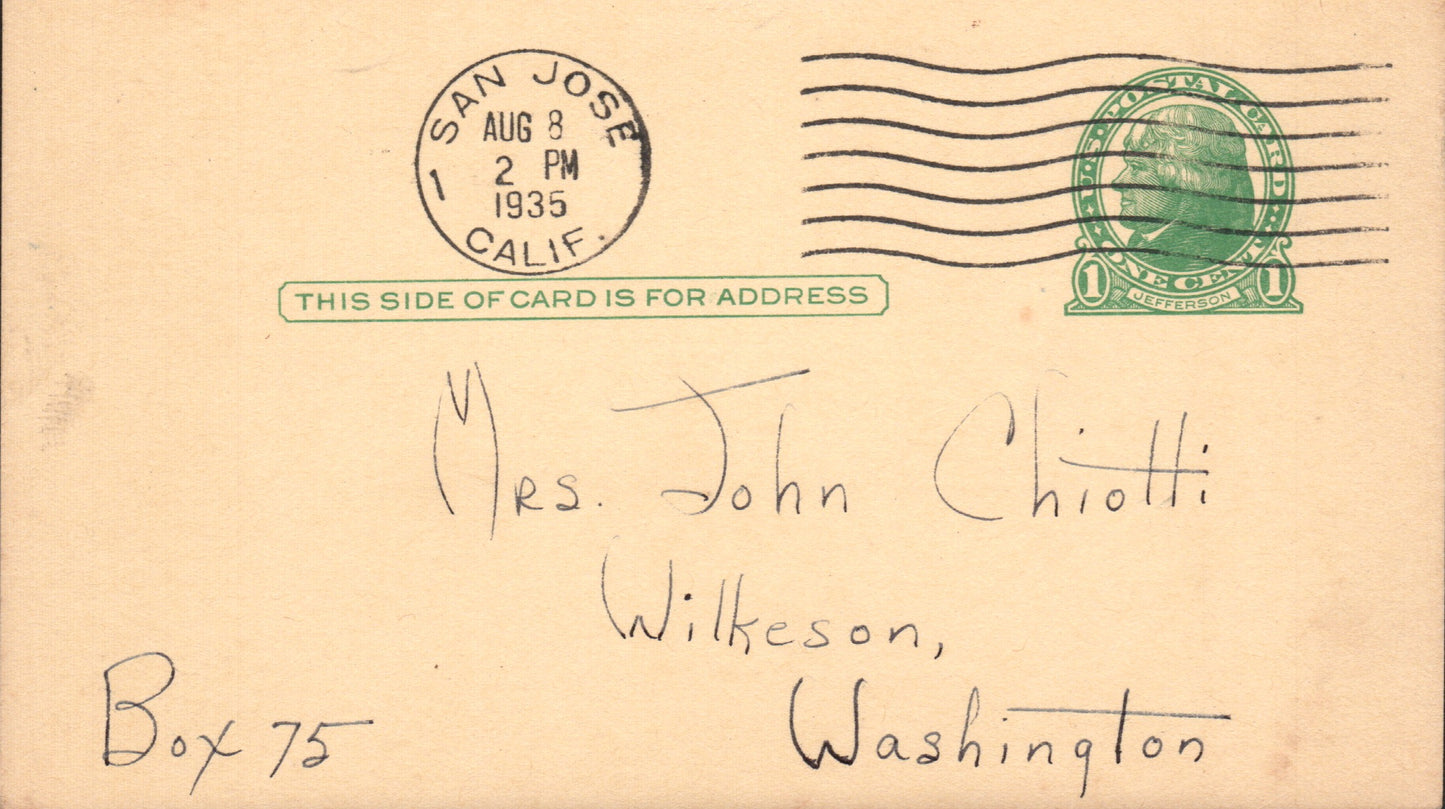 SAN JOSE
AUG 8
2 PM
1935
1
CALIF.
U.S. POSTAL CARD
1 ONE CENT 1
JEFFERSON
THIS SIDE OF CARD IS FOR ADDRESS
Mrs. John Chiotti
Wilkeson,
Box 75
Washington